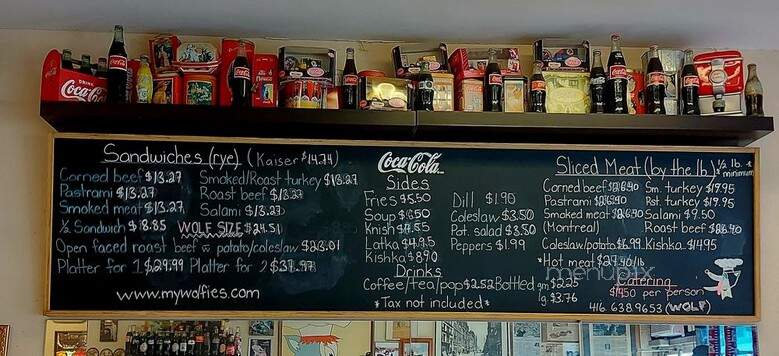 DRINK
Coca-Cola
Sandwiches (rye) (Kaiser $14.74)
Corned beef $13.27 Smoked/Roast turkey $13.27
Pastrami $13.27 Roast beef $13.27
Smoked meat $13.27 Salami $13.27
½ Sandwich $8.85 WOLF SIZE $24.51
Open faced roast beef w potato/coleslaw
Platter for 1 $29.99 Platter for 2 $37.97
www.mywolfies.com
Coca-Cola
Sides
Fries $5.50 Dill $1.90
Soup $6.50 Coleslaw $3.50
Knish Pot. salad $3.50
Latka $4.95 Peppers $1.99
Kishka $8.90
Drinks
Coffee/tea/pop $2.52 Bottled sm $2.25
lg. $3.76
*Tax not included*
Sliced Meat (by the lb.) ½ lb. * minimum
Corned beef Sm. turkey $19.95
Pastrami Rst. turkey $19.95
Smoked meat Salami $9.50
(Montreal) Roast beef
Coleslaw/potato $6.99 Kishka $14.95
*Hot meat $37.40/lb
menupix
Catering
$14.50 per person
416 638.9653 (WOLF)